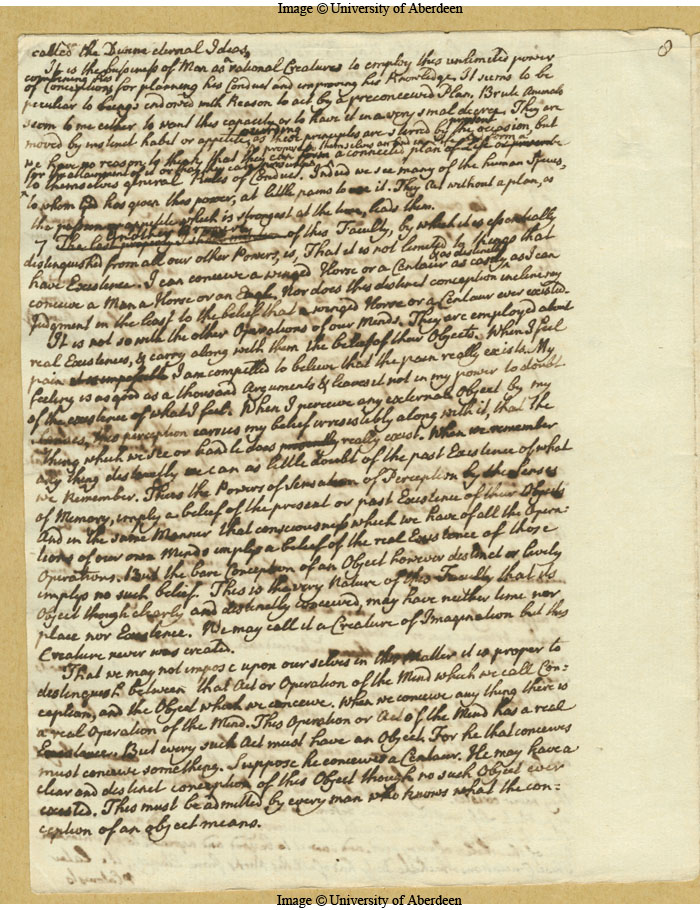 Image © University of Aberdeen
8
called the Divine eternal Ideas,
It is the business of Man as a rational Creature to employ this unlimited power
of Conception, for planning his Conduct and improving his Knowledge. It seems to be
peculiar to beings endowed with Reason to act by a preconceived Plan. Brute Animals
seem to me either to want this capacity or to have it in a very smal degree. They are
moved by instinct habit or appetite, as these principles are stirred by the occasion, but
we have no reason to think that they can form a connected plan of
to themselves general Rules of Conduct. Indeed we see many of the human Species,
to whom God has given this power, at little pains to use it. They Act without a plan, as
the passion or appetite which is strongest at the time, leads them.
7 of this Faculty, by which it is essentially
distinguished from all our other Powers, is, That it is not limited to things that
have Existence. I can conceive a winged Horse or a Centaur as easily & as distinctly as I can
conceive a Man a Horse or an Eagle. Nor does this distinct conception incline my
Judgment in the least to the belief that a winged Horse or a Centaur ever existed.
It is not so with the other Operations of our Minds. They are employed about
real Existences, & carry along with them the belief of their Objects. When I feel
pain I am compelled to believe that the pain really exists. My
feeling is as good as a thousand Arguments & leaves it not in my power to doubt
of the existence of what I feel. When I perceive any external Object by my
Senses, this perception carries my belief irresistibly along with it, that the
thing which we see or handle does really exist. When we remember
any thing distinctly we can as little doubt of the past Existence of what
we Remember. Thus the Powers of Sensation of Perception by the Senses
of Memory, imply a belief of the present or past Existence of their Objects
And in the same Manner that consciousness which we have of all the Opera=
tions of our own Minds implys a belief of the real Existence of those
Operations. But the bare Conception of an Object however distinct or lively
implys no such belief. This is the very Nature of this Faculty that its
Object though clearly and distinctly conceived, may have neither time nor
place nor Existence. We may call it a Creature of Imagination but this
Creature never was created.
That we may not impose upon our selves in this Matter it is proper to
distinguish between that Act or Operation of the Mind which we call Con=
ception, and the Object which we conceive. When we conceive any thing there is
a real Operation of the Mind. This Operation or Act of the Mind has a real
Existence. But every such Act must have an Object. For he that conceives
must conceive something. Suppose he conceives a Centaur. He may have a
clear and distinct conception of this Object though no such Object ever
existed. This must be admitted by every man who knows what the con=
ception of an object means.
Image © University of Aberdeen